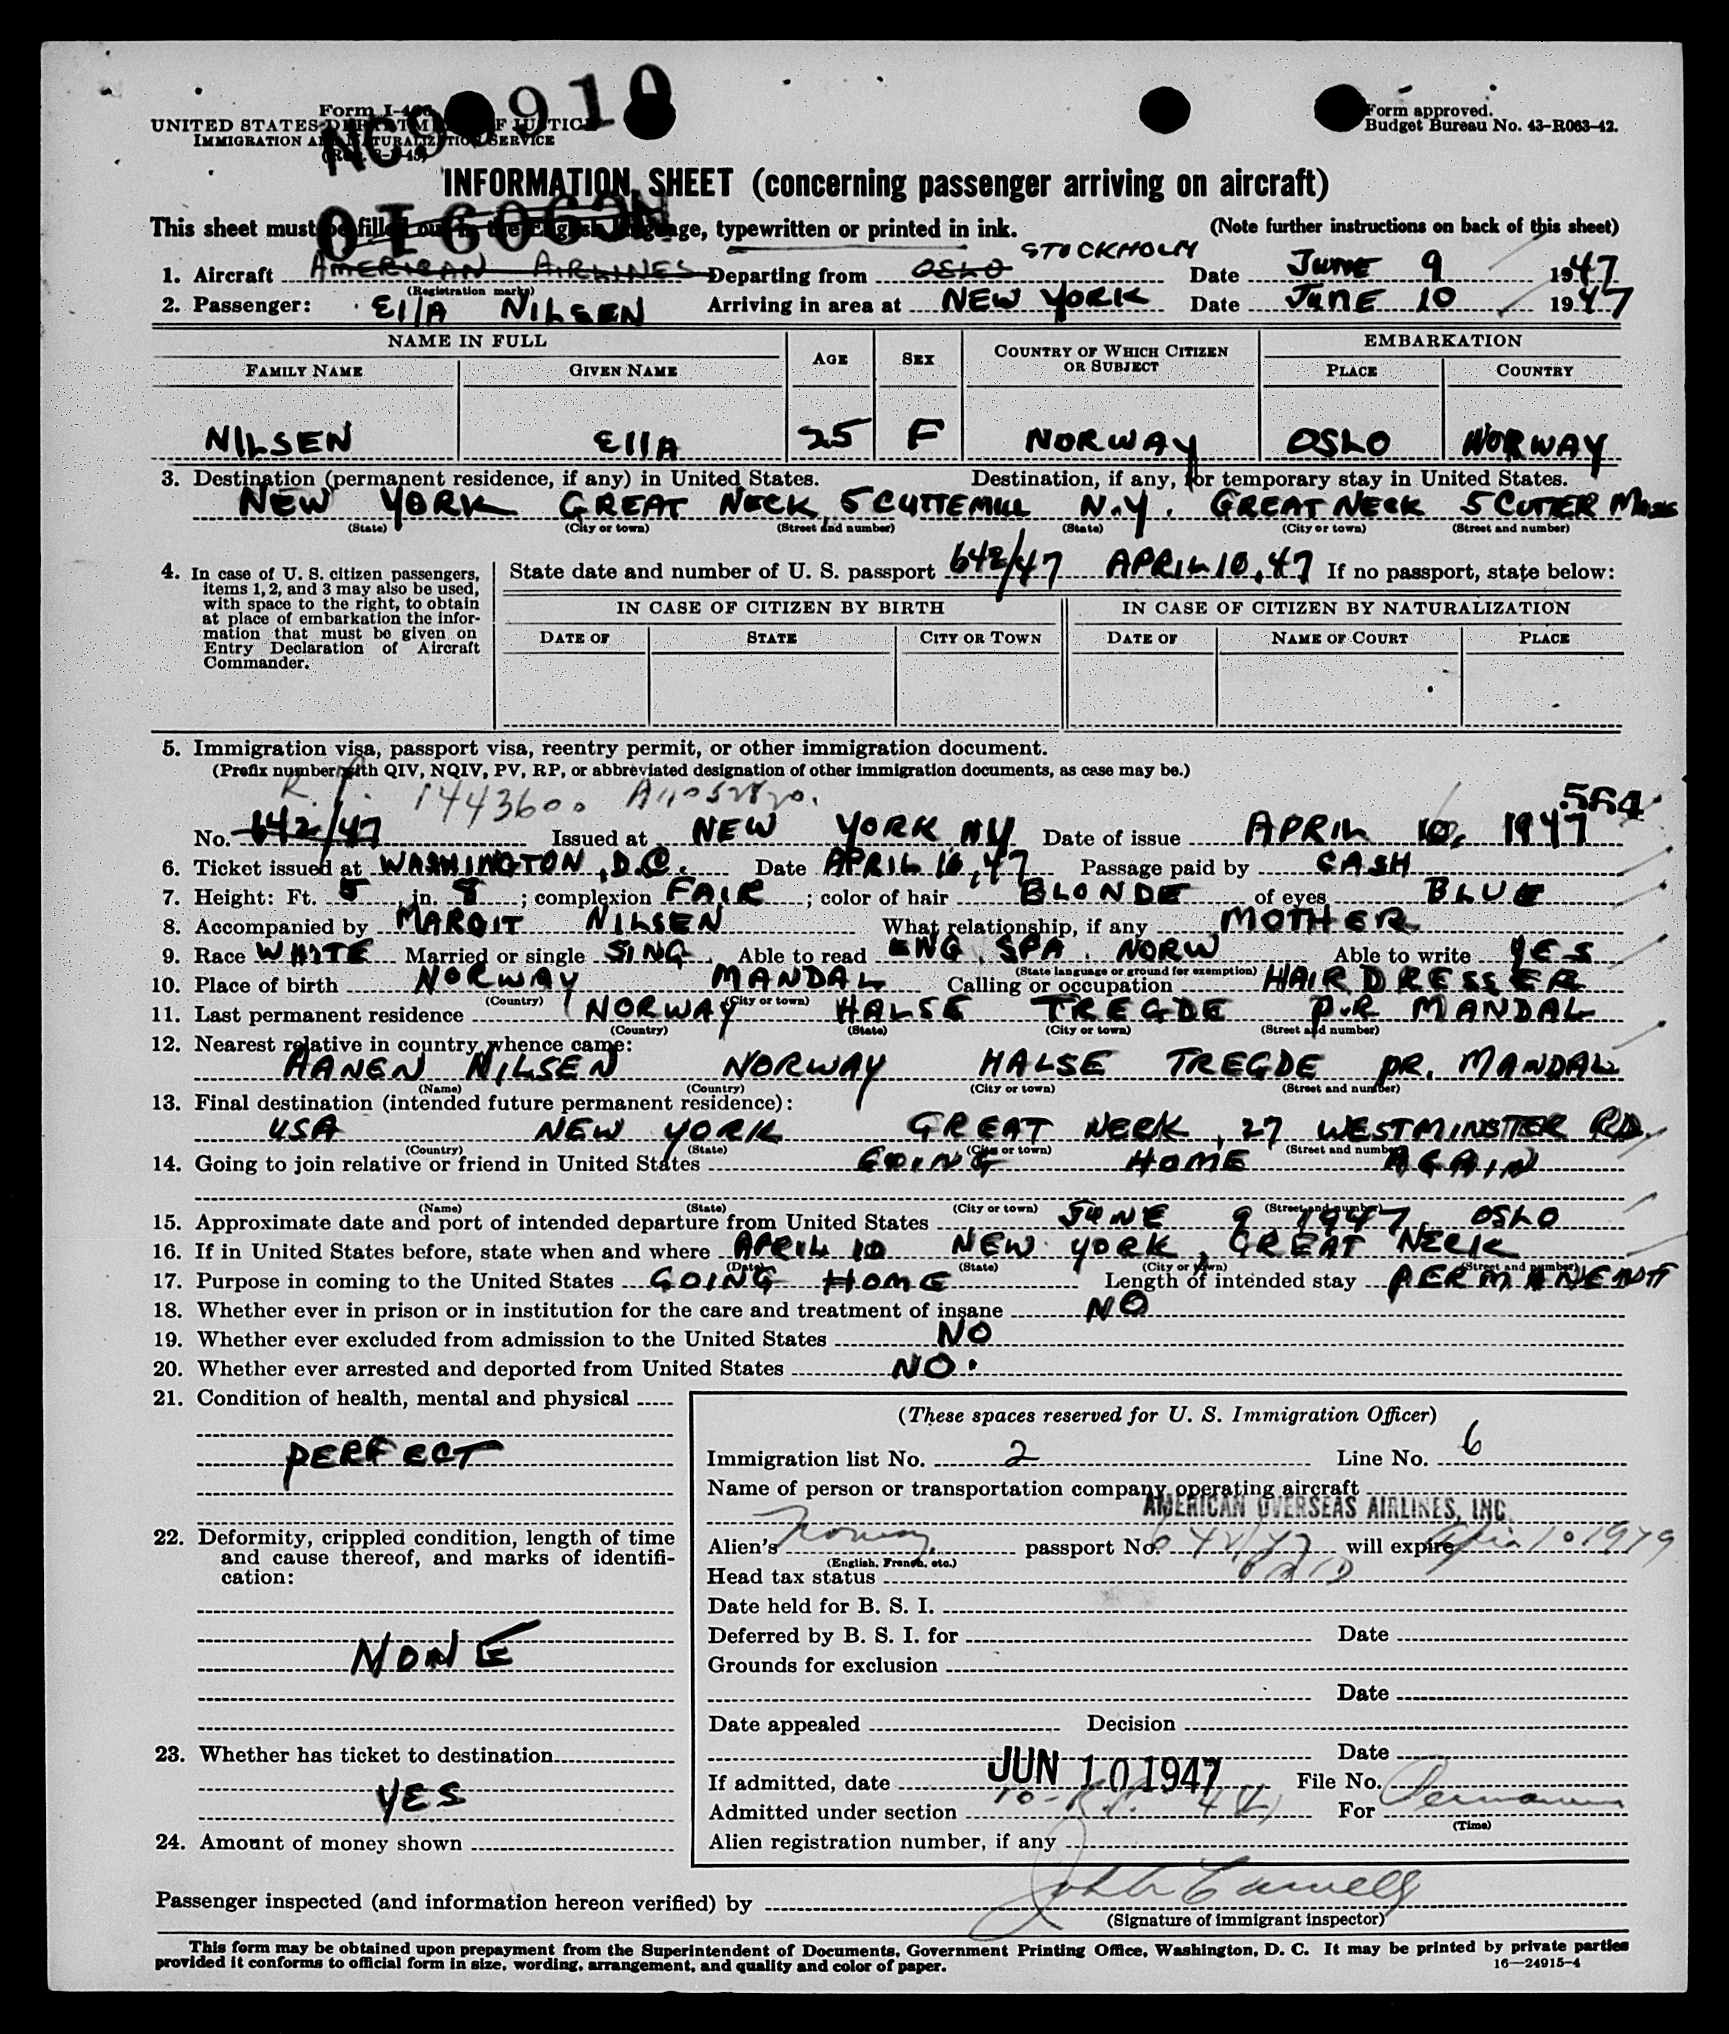 Form I-466
UNITED STATES DEPARTMENT OF JUSTICE
IMMIGRATION AND NATURALIZATION SERVICE
Form approved.
Budget Bureau No. 43-R063-42.
INFORMATION SHEET (concerning passenger arriving on aircraft)
This sheet must be filled out in the English language, typewritten or printed in ink. (Note further instructions on back of this sheet)
STOCKHOLM
1. Aircraft AMERICAN AIRLINES Departing from OSLO Date JUNE 9 1947
(Registration marks)
2. Passenger: EllA NILSEN Arriving in area at NEW YORK Date JUNE 10 1947
NAME IN FULL AGE SEX COUNTRY OF WHICH CITIZEN OR SUBJECT EMBARKATION
FAMILY NAME GIVEN NAME PLACE COUNTRY
NILSEN EllA 25 F NORWAY OSLO NORWAY
3. Destination (permanent residence, if any) in United States. Destination, if any, for temporary stay in United States.
NEW YORK GREAT NECK 5 CUTTEMILL N.Y. GREAT NECK 5 CUTTER
(State) (City or town) (Street and number) (State) (City or town) (Street and number)
4. In case of U. S. citizen passengers, items 1, 2, and 3 may also be used, with space to the right, to obtain at place of embarkation the information that must be given on Entry Declaration of Aircraft Commander.
State date and number of U. S. passport 642/47 APRIL 10, 47 If no passport, state below:
IN CASE OF CITIZEN BY BIRTH IN CASE OF CITIZEN BY NATURALIZATION
DATE OF STATE CITY OR TOWN DATE OF NAME OF COURT PLACE
5. Immigration visa, passport visa, reentry permit, or other immigration document.
(Prefix number with QIV, NQIV, PV, RP, or abbreviated designation of other immigration documents, as case may be.)
R.P. 1443600 564
No. 642/47 Issued at NEW YORK NY Date of issue APRIL 10, 1947
6. Ticket issued at WASHINGTON, D.C. Date APRIL 10, 47 Passage paid by CASH
7. Height: Ft. 5, in. 8; complexion FAIR; color of hair BLONDE of eyes BLUE
8. Accompanied by MARGIT NILSEN What relationship, if any MOTHER
9. Race WHITE Married or single SING. Able to read ENG. SPA. NORW Able to write YES
(State language or ground for exemption)
10. Place of birth NORWAY MANDAL Calling or occupation HAIRDRESSER
(Country) (City or town)
11. Last permanent residence NORWAY HALSE TREGDE P.R MANDAL
(Country) (State) (City or town) (Street and number)
12. Nearest relative in country whence came:
HANEN NILSEN NORWAY HALSE TREGDE PR. MANDAL
(Name) (Country) (City or town) (Street and number)
13. Final destination (intended future permanent residence):
USA NEW YORK GREAT NECK, 27 WESTMINSTER RD.
(Country) (State) (City or town) (Street and number)
14. Going to join relative or friend in United States GOING HOME AGAIN
(Name) (State) (City or town) (Street and number)
15. Approximate date and port of intended departure from United States JUNE 9 1947, OSLO
16. If in United States before, state when and where APRIL 10 NEW YORK, GREAT NECK
(Date) (State) (City or town) (Street and number)
17. Purpose in coming to the United States GOING HOME Length of intended stay PERMANENT
18. Whether ever in prison or in institution for the care and treatment of insane NO
19. Whether ever excluded from admission to the United States NO
20. Whether ever arrested and deported from United States NO.
21. Condition of health, mental and physical
PERFECT
22. Deformity, crippled condition, length of time and cause thereof, and marks of identification:
NONE
23. Whether has ticket to destination
YES
24. Amount of money shown
(These spaces reserved for U. S. Immigration Officer)
Immigration list No. 2 Line No. 6
Name of person or transportation company operating aircraft
AMERICAN OVERSEAS AIRLINES, INC.
Alien's Norway passport No. 642/47 will expire April 10 1949
(English, French, etc.)
Head tax status
Date held for B. S. I.
Deferred by B. S. I. for Date
Grounds for exclusion
Date
Date appealed Decision
Date
If admitted, date JUN 10 1947 File No.
Admitted under section For Permanent
(Time)
Alien registration number, if any
Passenger inspected (and information hereon verified) by
(Signature of immigrant inspector)
This form may be obtained upon prepayment from the Superintendent of Documents, Government Printing Office, Washington, D. C. It may be printed by private parties
provided it conforms to official form in size, wording, arrangement, and quality and color of paper.
16—24915-4